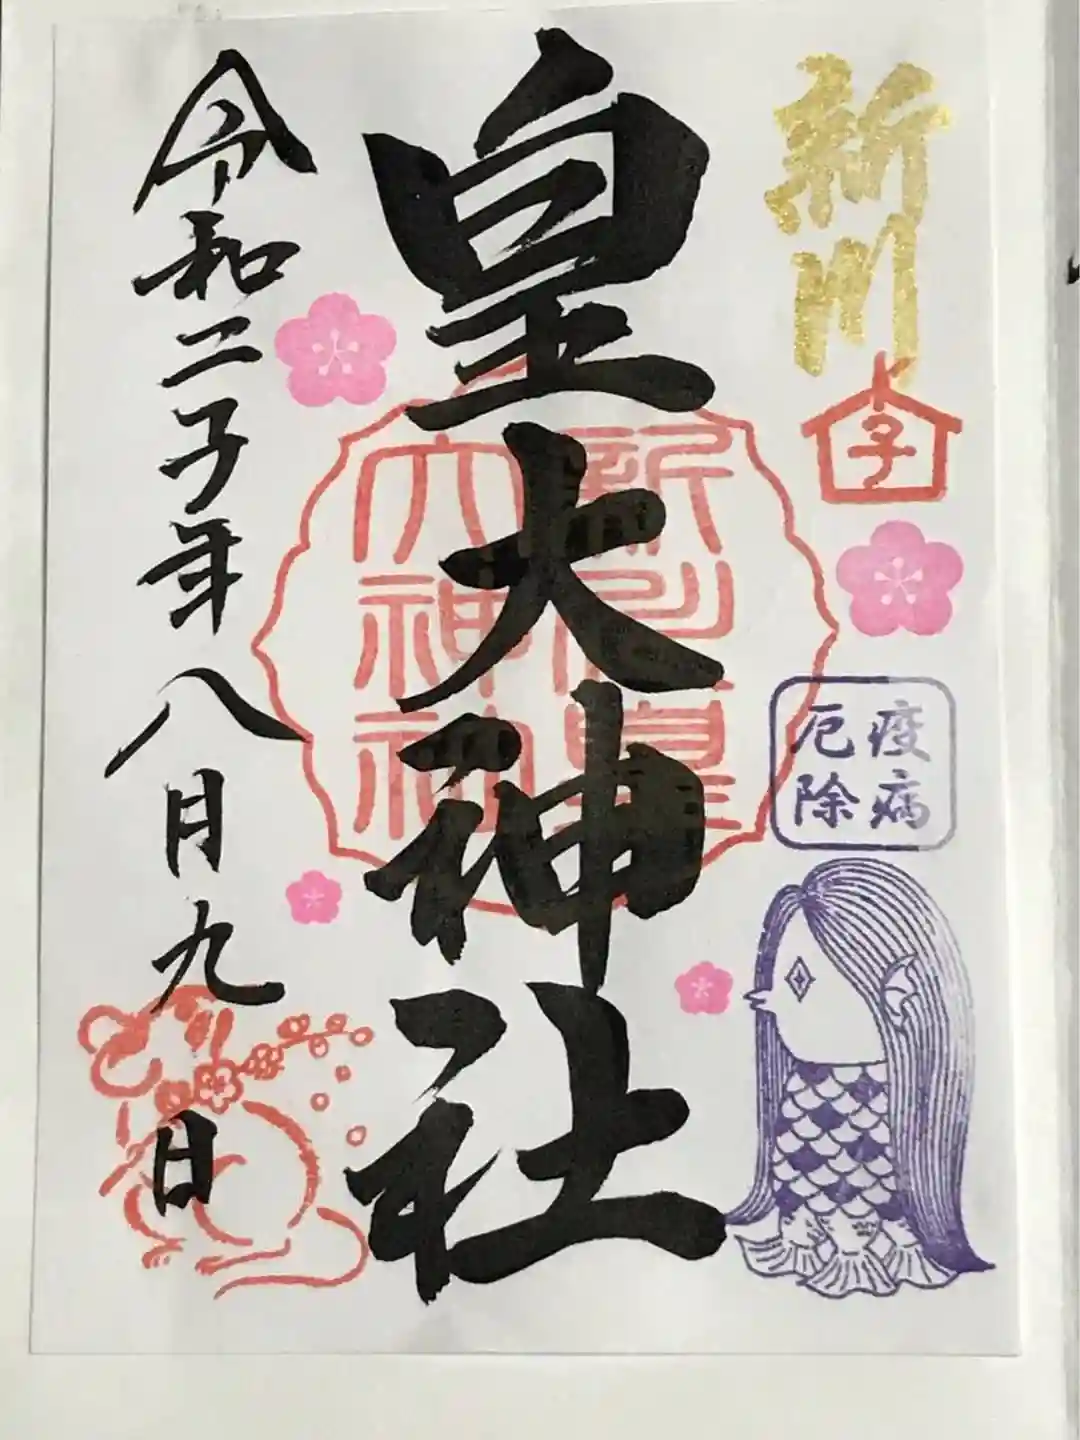 新川
疫病
厄除
皇大神社
新川皇
大神社
令和二子年八月九日